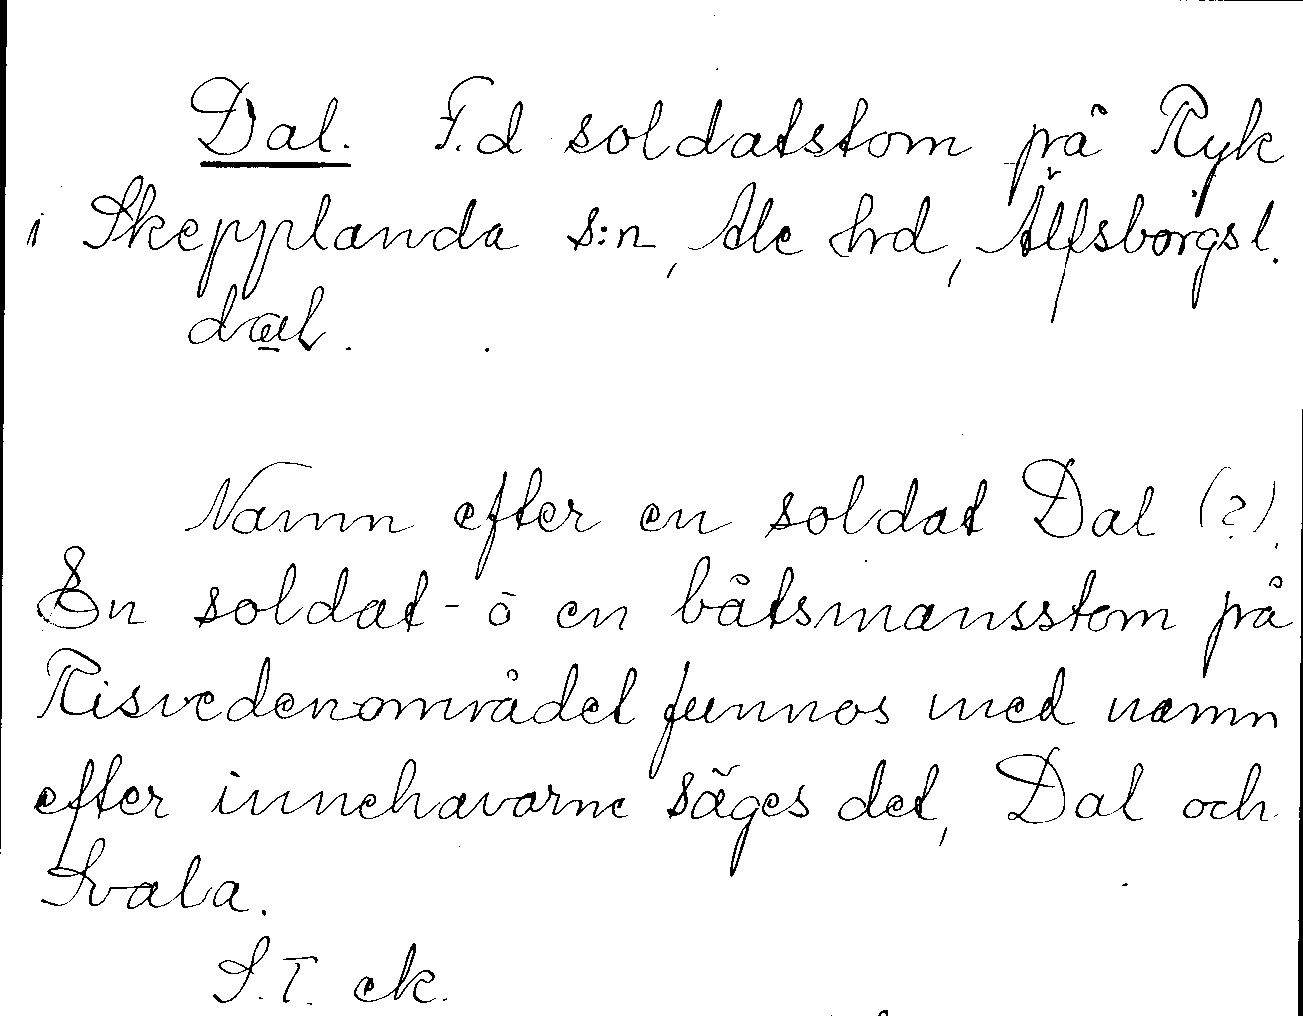 Dal. F.d soldatstom på Ryk
i Skepplanda s:n, Ale hrd, Älfsborgs l.
dal.
Namn efter en soldat Dal (?).
En soldat- o en båtsmansstom på
Risvedenområdet funnos med namn
efter innehavarne säges det, Dal och
Svala.
S.T. ek.